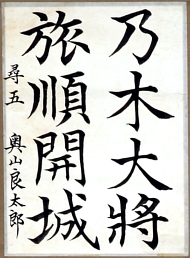 乃木大將
旅順開城
尋五 奥山良太郎